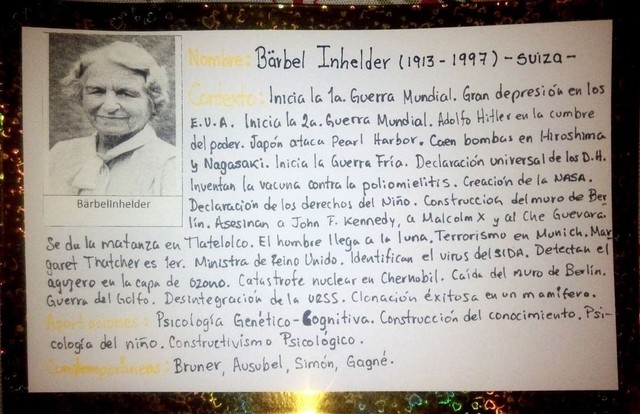 Nombre: Bärbel Inhelder (1913 - 1997) - Suiza -
Contexto: Inicia la 1a. Guerra Mundial. Gran depresión en los
E.U.A. Inicia la 2a. Guerra Mundial. Adolfo Hitler en la cumbre
del poder. Japón ataca Pearl Harbor. Caen bombas en Hiroshima
y Nagasaki. Inicia la Guerra Fría. Declaración universal de los D.H.
Inventan la vacuna contra la poliomielitis. Creación de la NASA.
Declaración de los derechos del Niño. Construccion del muro de Ber-
lín. Asesinan a John F. Kennedy, a Malcolm X y al Che Guevara.
BärbelInhelder
Se da la matanza en Tlatelolco. El hombre llega a la luna. Terrorismo en Munich. Mar
garet Thatcher es 1er. Ministra de Reino Unido. Identifican el virus del SIDA. Detectan el
agujero en la capa de ozono. Catastrofe nuclear en Chernobil. Caída del muro de Berlín.
Guerra del Golfo. Desintegración de la URSS. Clonación éxitosa en un mamífero.
Aportaciones: Psicología Genético-Cognitiva. Construcción del conocimiento. Psi-
cología del niño. Constructivismo Psicológico.
Contemporáneos: Bruner, Ausubel, Simón, Gagné.